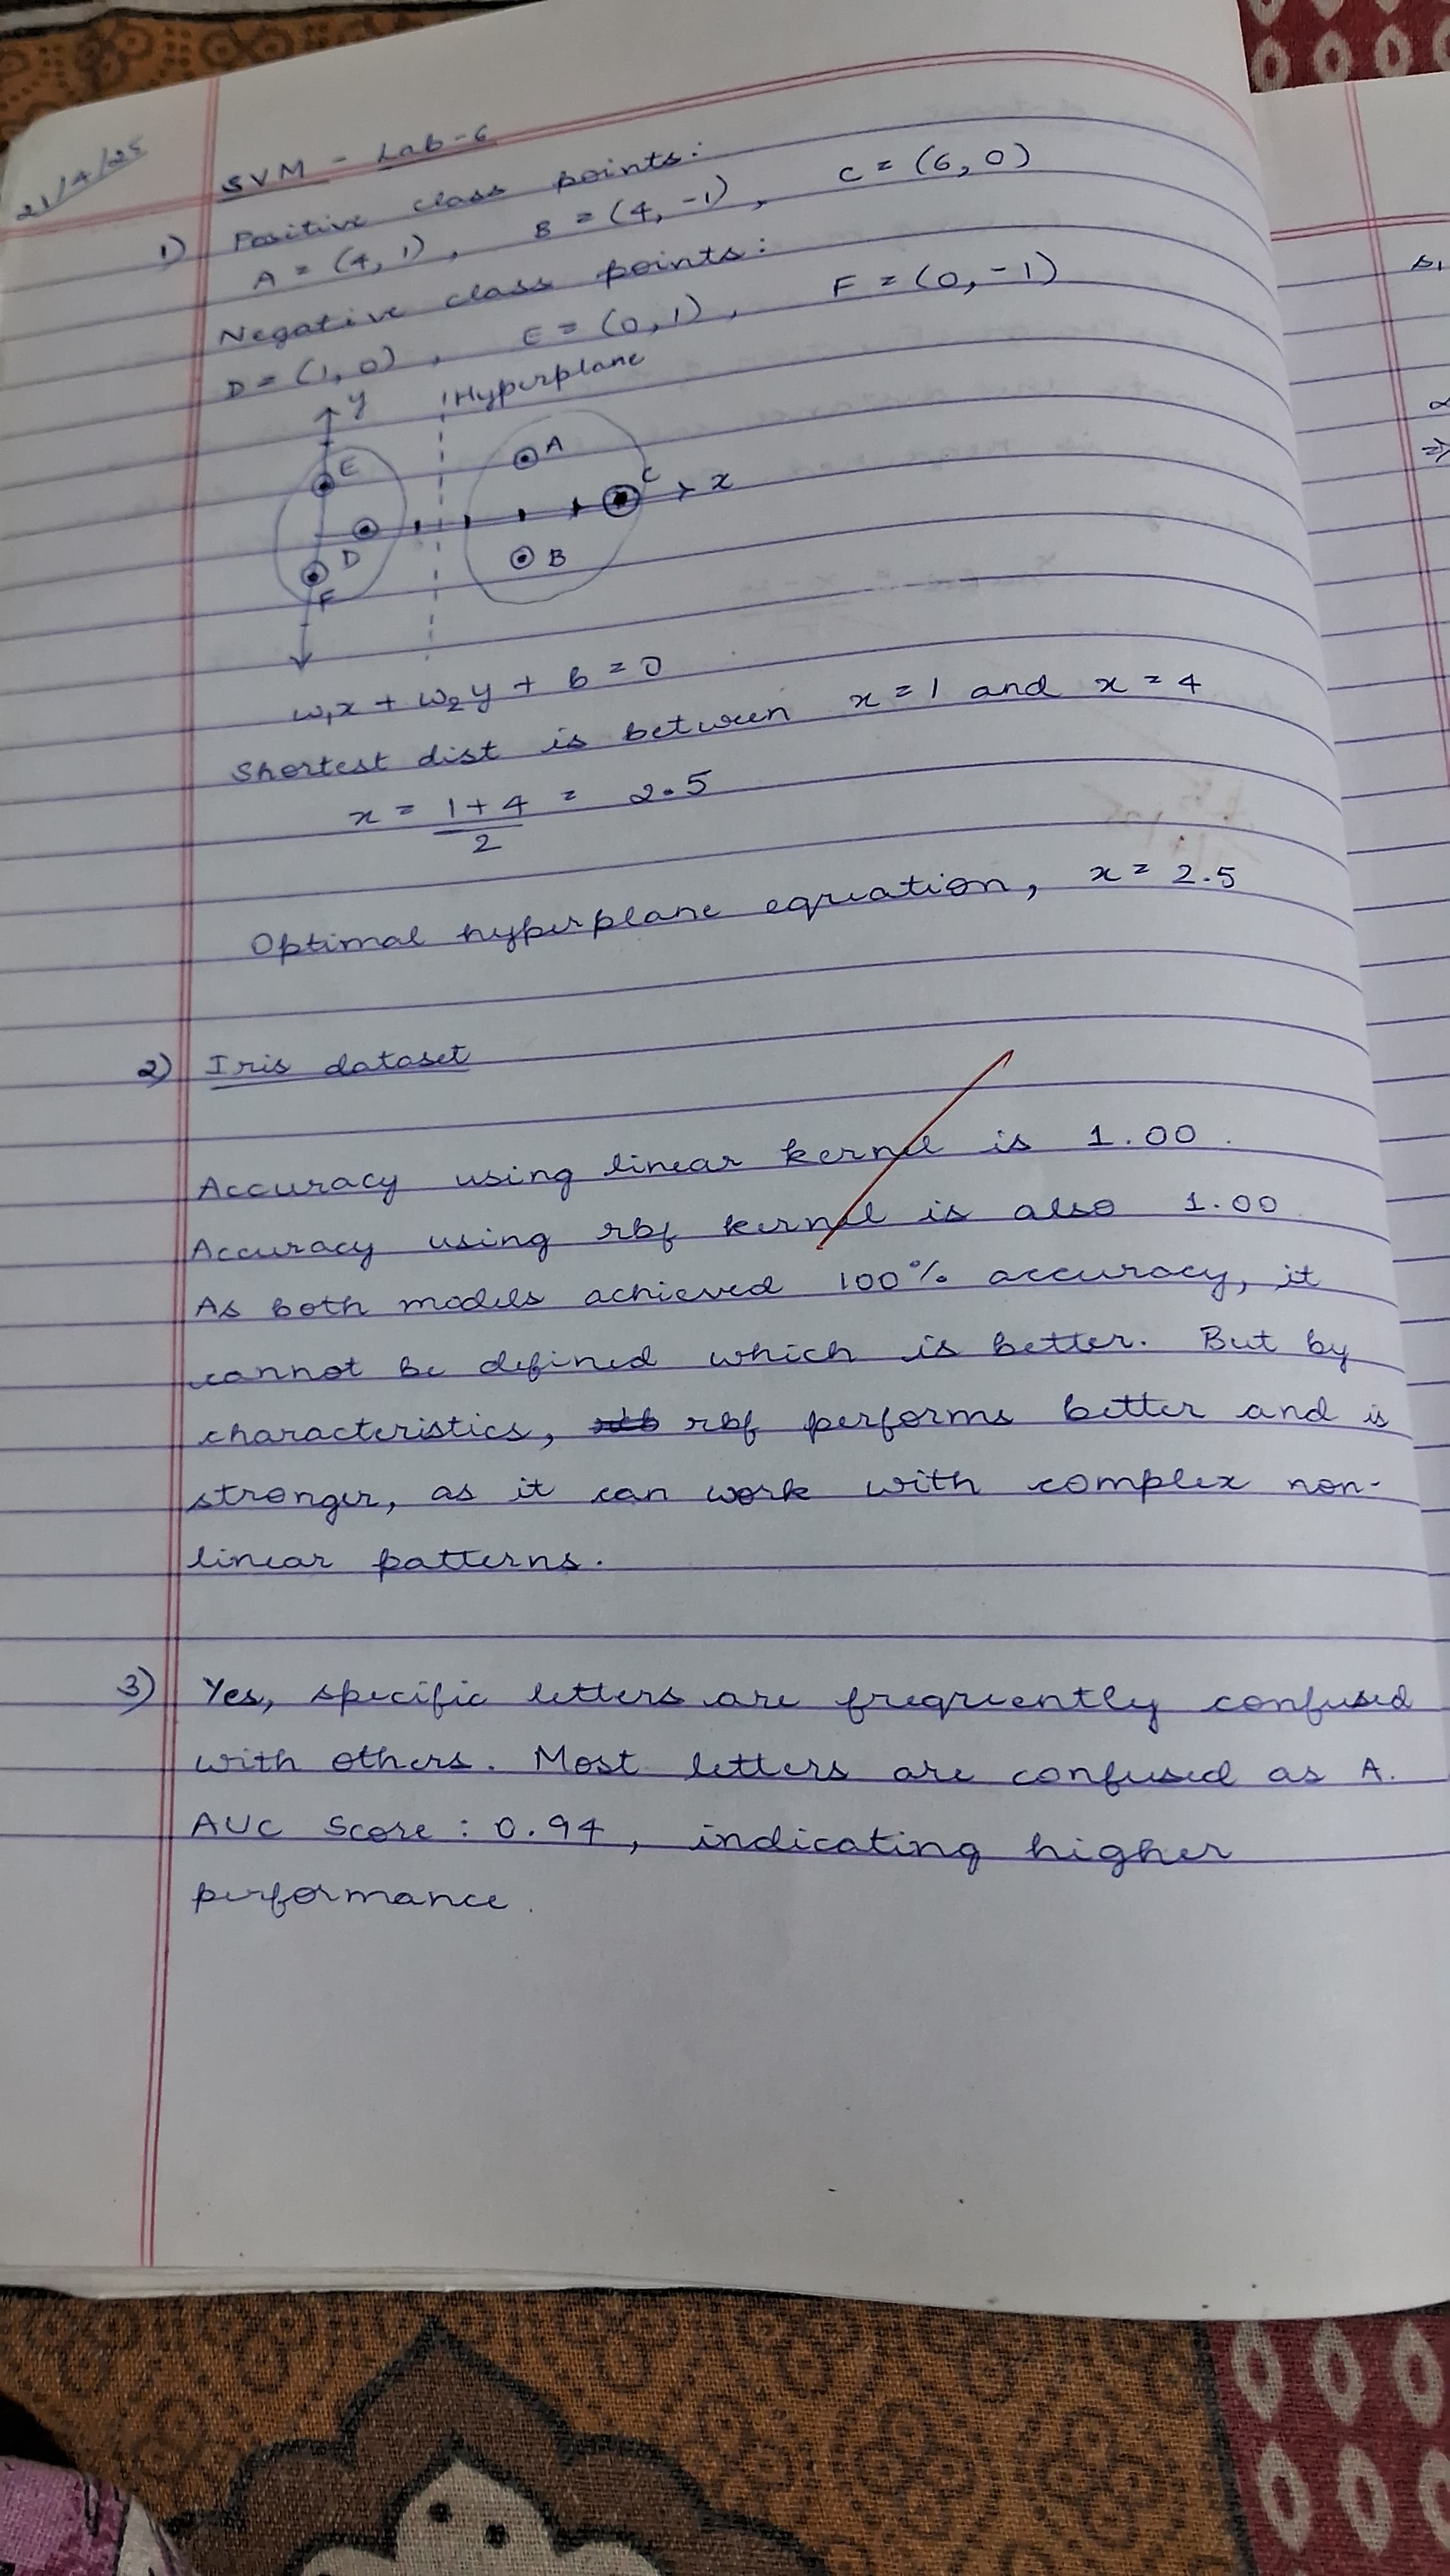 21/4/25
SVM - Lab-6
1) Positive class points:
A = (4, 1), B = (4, -1), C = (6, 0)
Negative class points:
D = (1, 0), E = (0, 1), F = (0, -1)
y Hyperplane
E A C x
D B
F
w₁x + w₂y + b = 0
Shortest dist is between x = 1 and x = 4
x = 1+4 = 2.5
2
Optimal hyperplane equation, x = 2.5
2) Iris dataset
Accuracy using linear kernel is 1.00.
Accuracy using rbf kernel is also 1.00
As both models achieved 100% accuracy, it
cannot be defined which is better. But by
characteristics, rbf performs better and is
stronger, as it can work with complex non-
linear patterns.
3) Yes, specific letters are frequently confused
with others. Most letters are confused as A.
AUC Score : 0.94, indicating higher
performance.